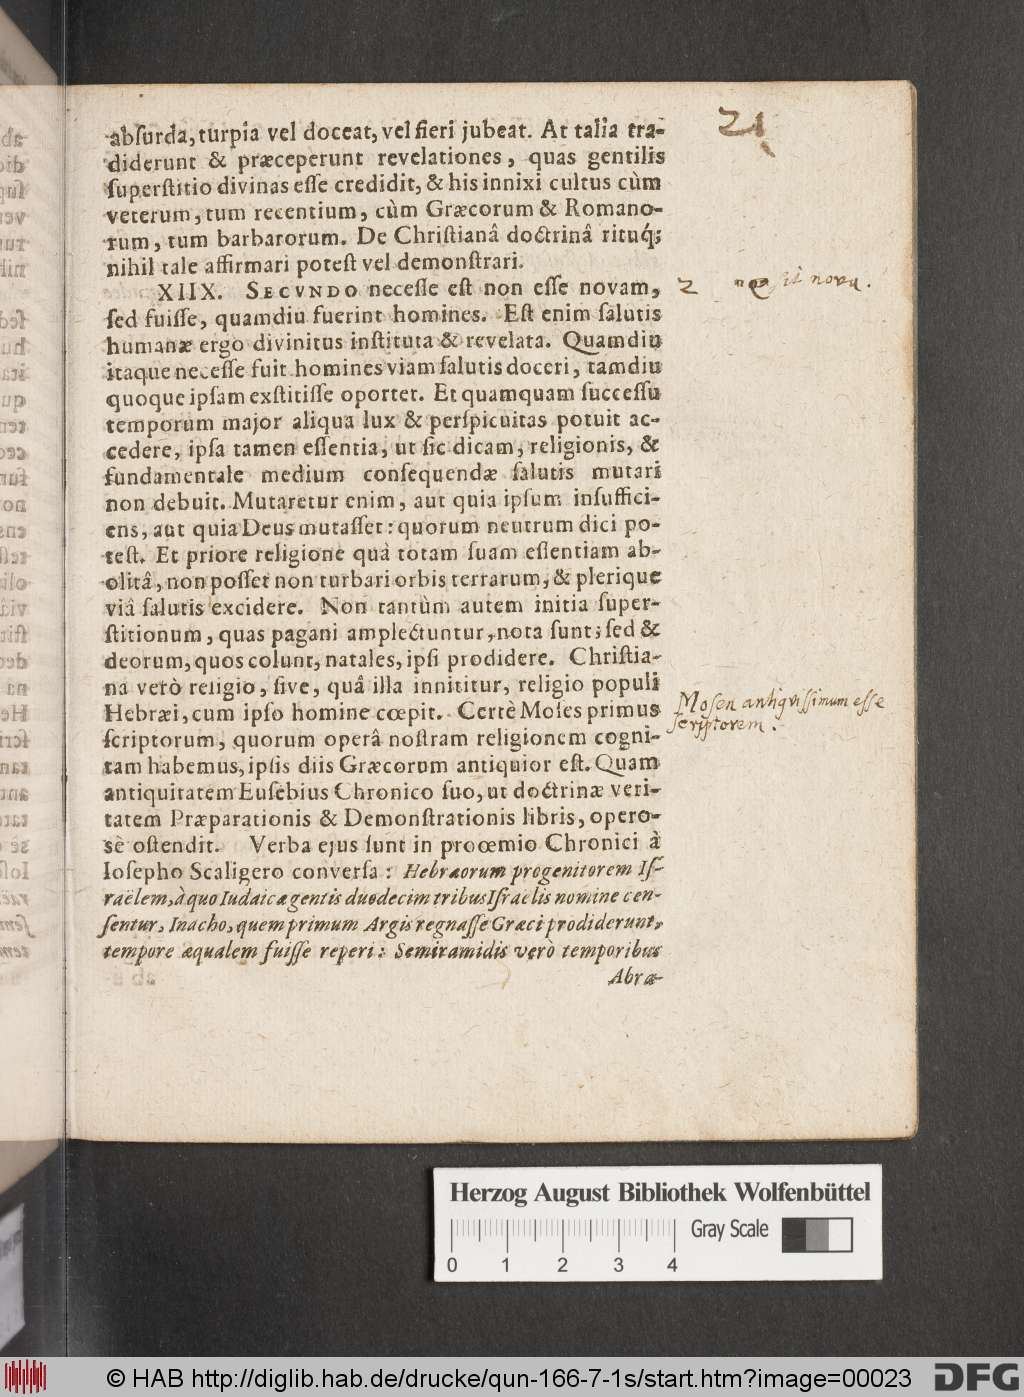 21
abſurda, turpia vel doceat, vel fieri jubeat. At talia tra-
diderunt & præceperunt revelationes, quas gentilis
ſuperſtitio divinas eſſe credidit, & his innixi cultus cùm
veterum, tum recentium, cùm Græcorum & Romano-
rum, tum barbarorum. De Chriſtianâ doctrinâ rituq́;
nihil tale affirmari poteſt vel demonſtrari.
XIIX. SECVNDO neceſſe eſt non eſſe novam,
2 sit nova.
ſed fuiſſe, quamdiu fuerint homines. Eſt enim ſalutis
humanæ ergo divinitus inſtituta & revelata. Quamdiu
itaque neceſſe fuit homines viam ſalutis doceri, tamdiu
quoque ipſam exſtitiſſe oportet. Et quamquam ſucceſſu
temporum major aliqua lux & perſpicuitas potuit ac-
cedere, ipſa tamen eſſentia, ut ſic dicam, religionis, &
fundamentale medium conſequendæ ſalutis mutari
non debuit. Mutaretur enim, aut quia ipſum inſuffici-
ens, aut quia Deus mutaſſet: quorum neutrum dici po-
teſt. Et priore religione quà totam ſuam eſſentiam ab-
olitâ, non poſſet non turbari orbis terrarum, & plerique
viâ ſalutis excidere. Non tantùm autem initia ſuper-
ſtitionum, quas pagani amplectuntur, nota ſunt; ſed &
deorum, quos colunt, natales, ipſi prodidere. Chriſtia-
na verò religio, ſive, quâ illa innititur, religio populi
Hebræi, cum ipſo homine cœpit. Certè Moſes primus
Mosen antiquissimum esse
scriptorem.
ſcriptorum, quorum operâ noſtram religionem cogni-
tam habemus, ipſis diis Græcorum antiquior eſt. Quam
antiquitatem Euſebius Chronico ſuo, ut doctrinæ veri-
tatem Præparationis & Demonſtrationis libris, opero-
sè oſtendit. Verba ejus ſunt in procœmio Chronici à
Ioſepho Scaligero converſa: Hebræorum progenitorem Iſ-
raëlem, à quo Iudaicæ gentis duodecim tribus Iſraëlis nomine cen-
ſentur, Inacho, quem primum Argis regnaſſe Græci prodiderunt,
tempore æqualem fuiſſe reperi: Semiramidis verò temporibus
Abra-
Herzog August Bibliothek Wolfenbüttel
Gray Scale
0 1 2 3 4
© HAB http://diglib.hab.de/drucke/qun-166-7-1s/start.htm?image=00023
DFG